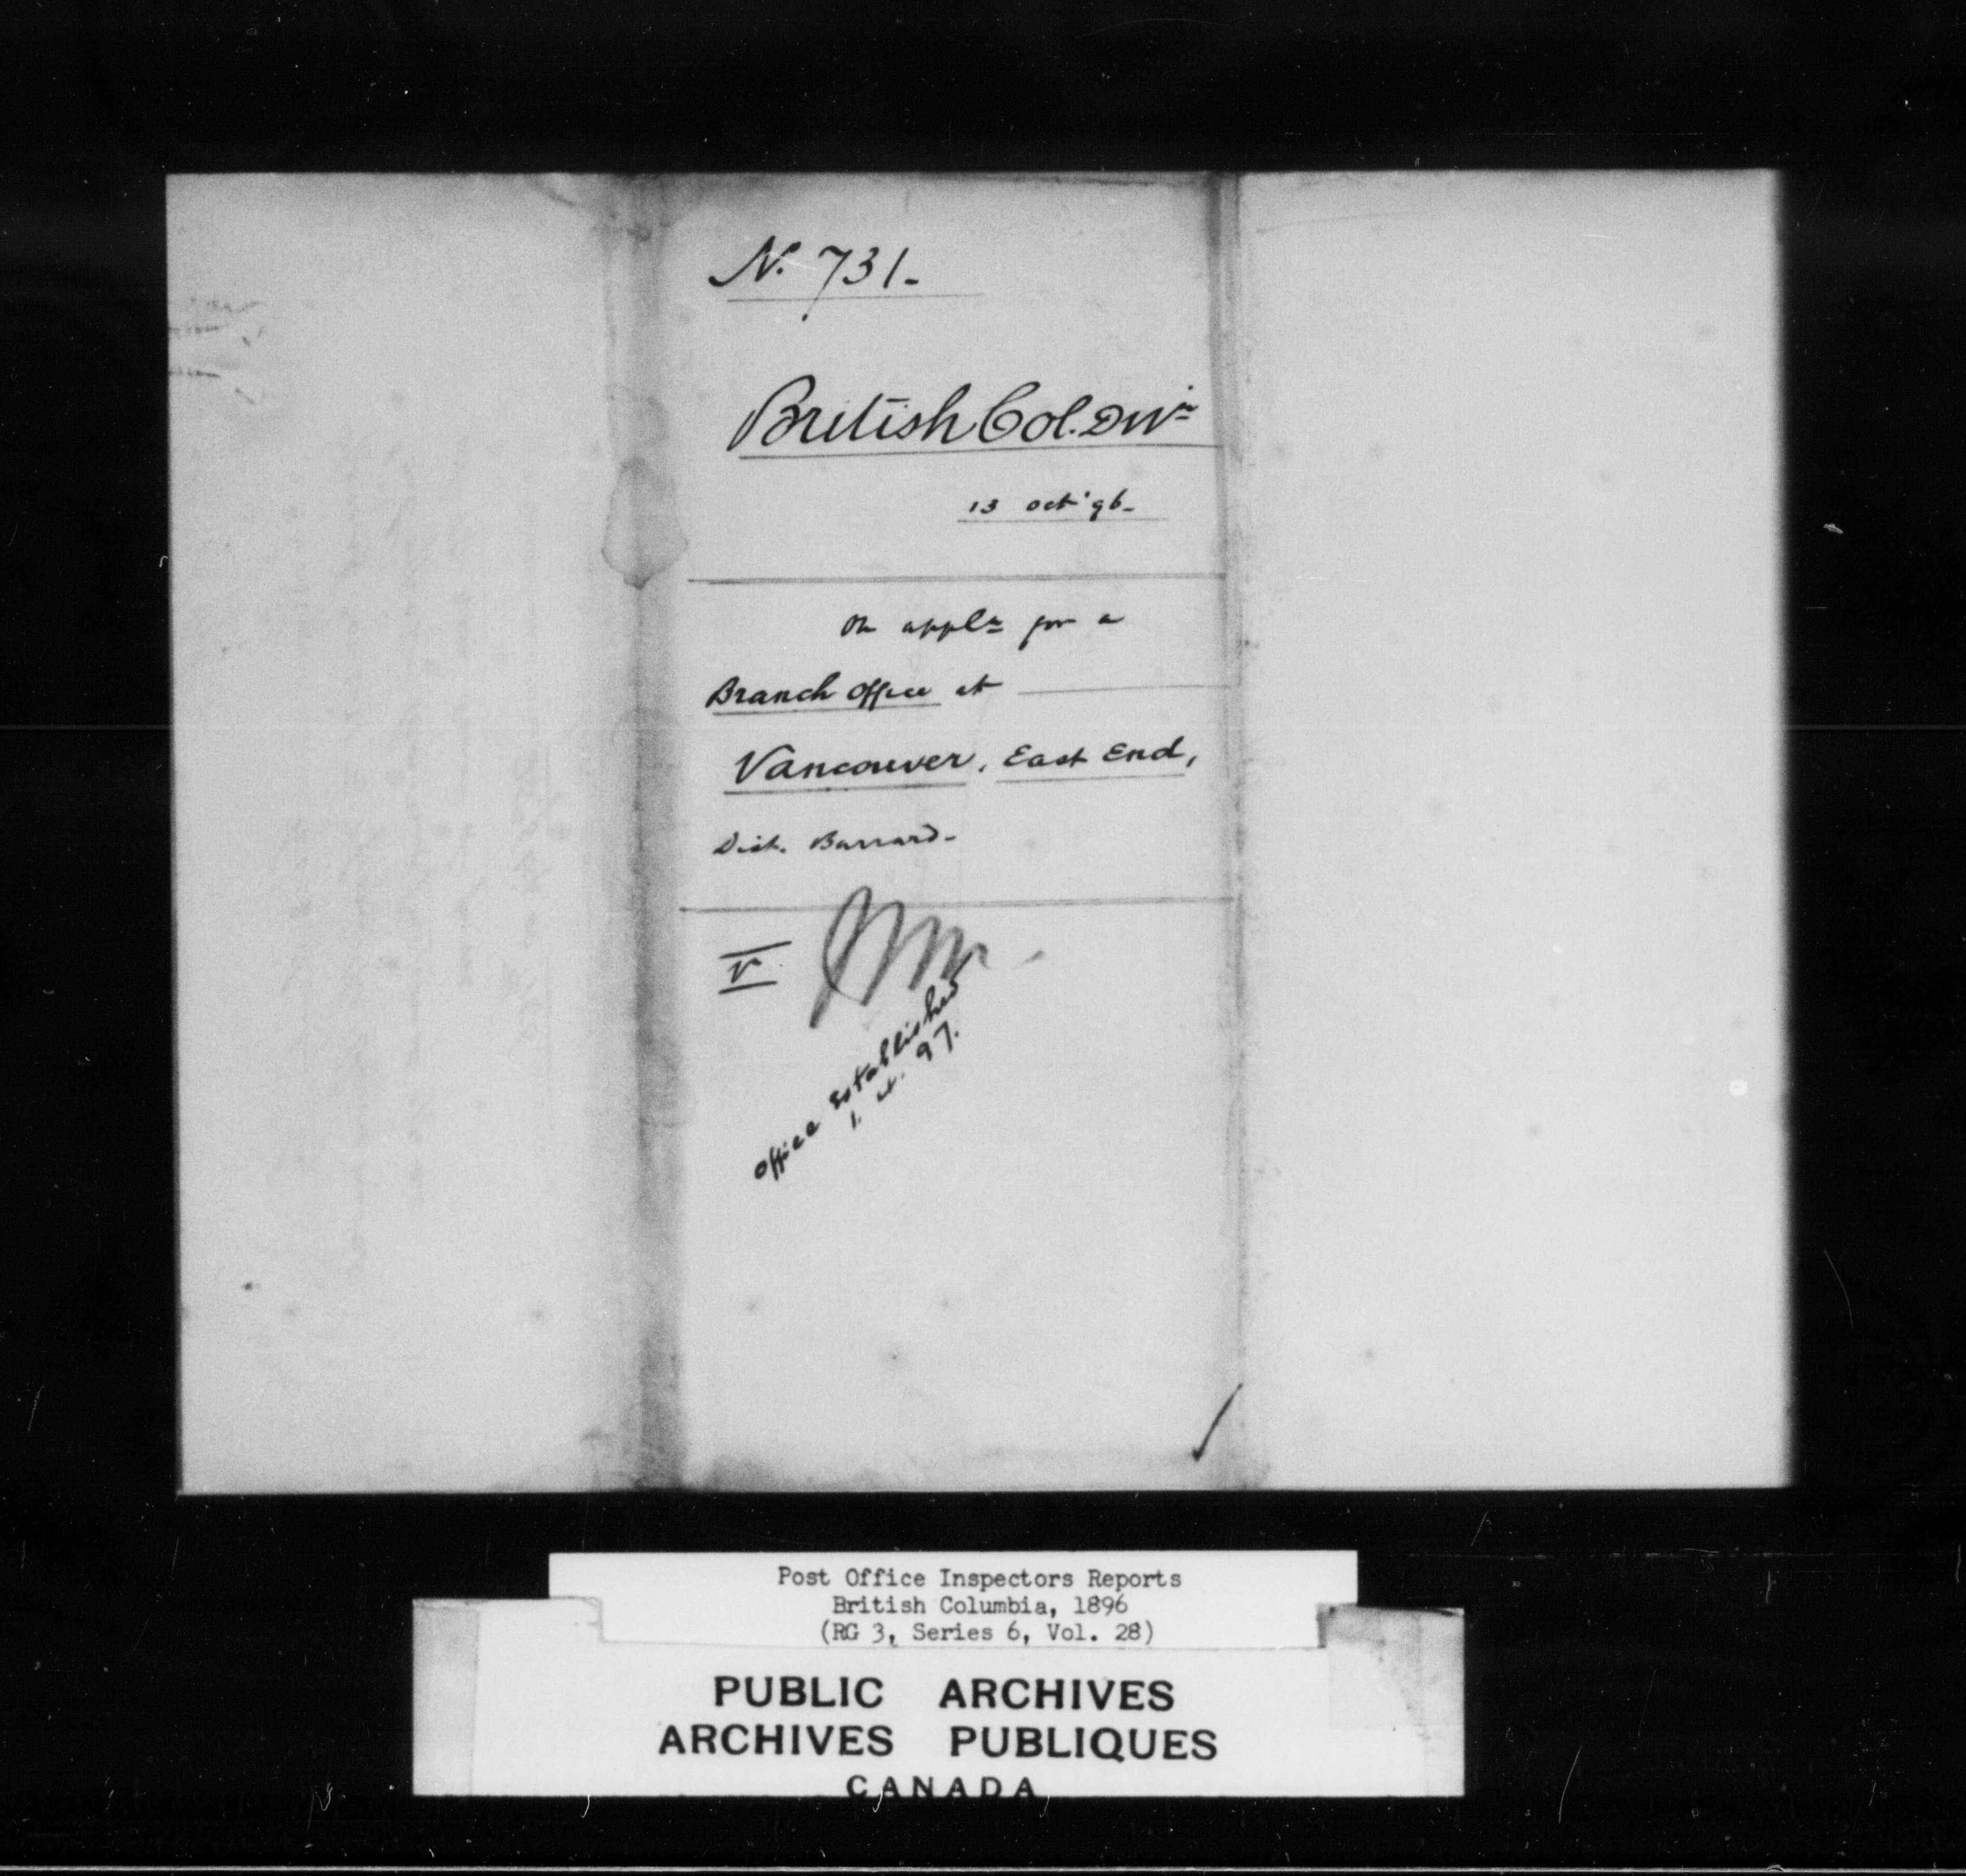 N. 731-
British Col. Divn
13 Oct '96-
On appln for a
Branch Office at
Vancouver, East End,
Dist. Burrard-
Office Established
1. 97.
Post Office Inspectors Reports
British Columbia, 1896
(RG 3, Series 6, Vol. 28)
PUBLIC ARCHIVES
ARCHIVES PUBLIQUES
CANADA